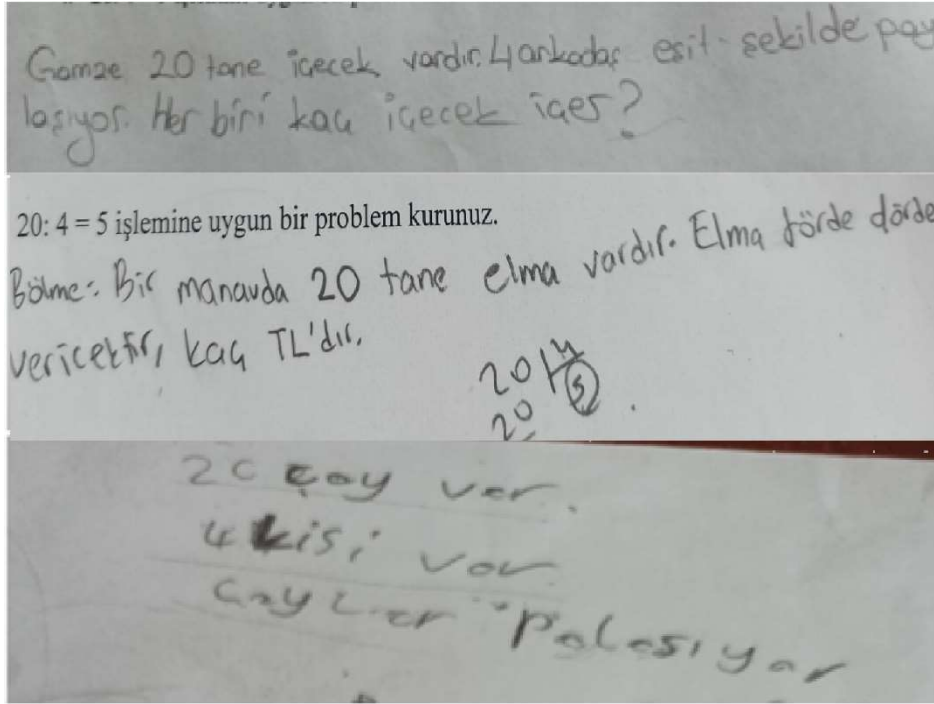 Gamze 20 tane içecek vardır. 4 arkadaş eşit şekilde pay
laşıyor. Her biri kaç içecek içer?
20: 4 = 5 işlemine uygun bir problem kurunuz.
Bölme: Bir manavda 20 tane elma vardır. Elma dörde dörde
vericektir, kaç TL'dır.
20 4
20 5
20 çay var.
4 kişi var
Çaylar palaşıyor